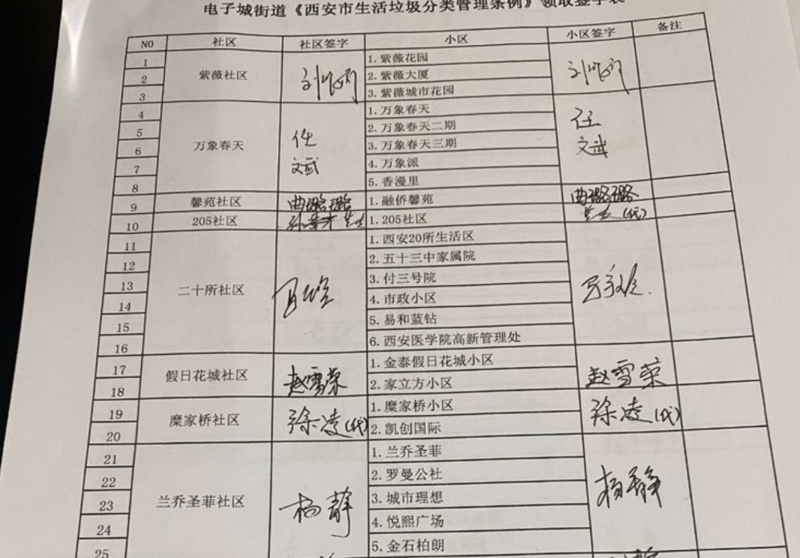 电子城街道《西安市生活垃圾分类管理条例》领取签字表
NO 社区 社区签字 小区 小区签字 备注
1 1. 紫薇花园
2 紫薇社区 2. 紫薇大厦
3 3. 紫薇城市花园
4 1. 万象春天
5 任 2. 万象春天二期 任
6 万象春天 文武 3. 万象春天三期 文武
7 4. 万象派
8 5. 香漫里
9 馨苑社区 曲璐璐 1. 融侨馨苑 曲璐璐
10 205社区 1. 205社区 (代)
11 1. 西安20所生活区
12 2. 五十三中家属院
13 二十所社区 3. 付三号院
14 4. 市政小区
15 5. 易和蓝钻
16 6. 西安医学院高新管理处
17 1. 金泰假日花城小区
18 假日花城社区 赵雪荣 2. 家立方小区 赵雪荣
19 1. 糜家桥小区
20 糜家桥社区 徐凌(代) 2. 凯创国际 徐凌(代)
21 1. 兰乔圣菲
22 2. 罗曼公社
23 兰乔圣菲社区 杨静 3. 城市理想 杨静
24 4. 悦熙广场
25 5. 金石柏朗